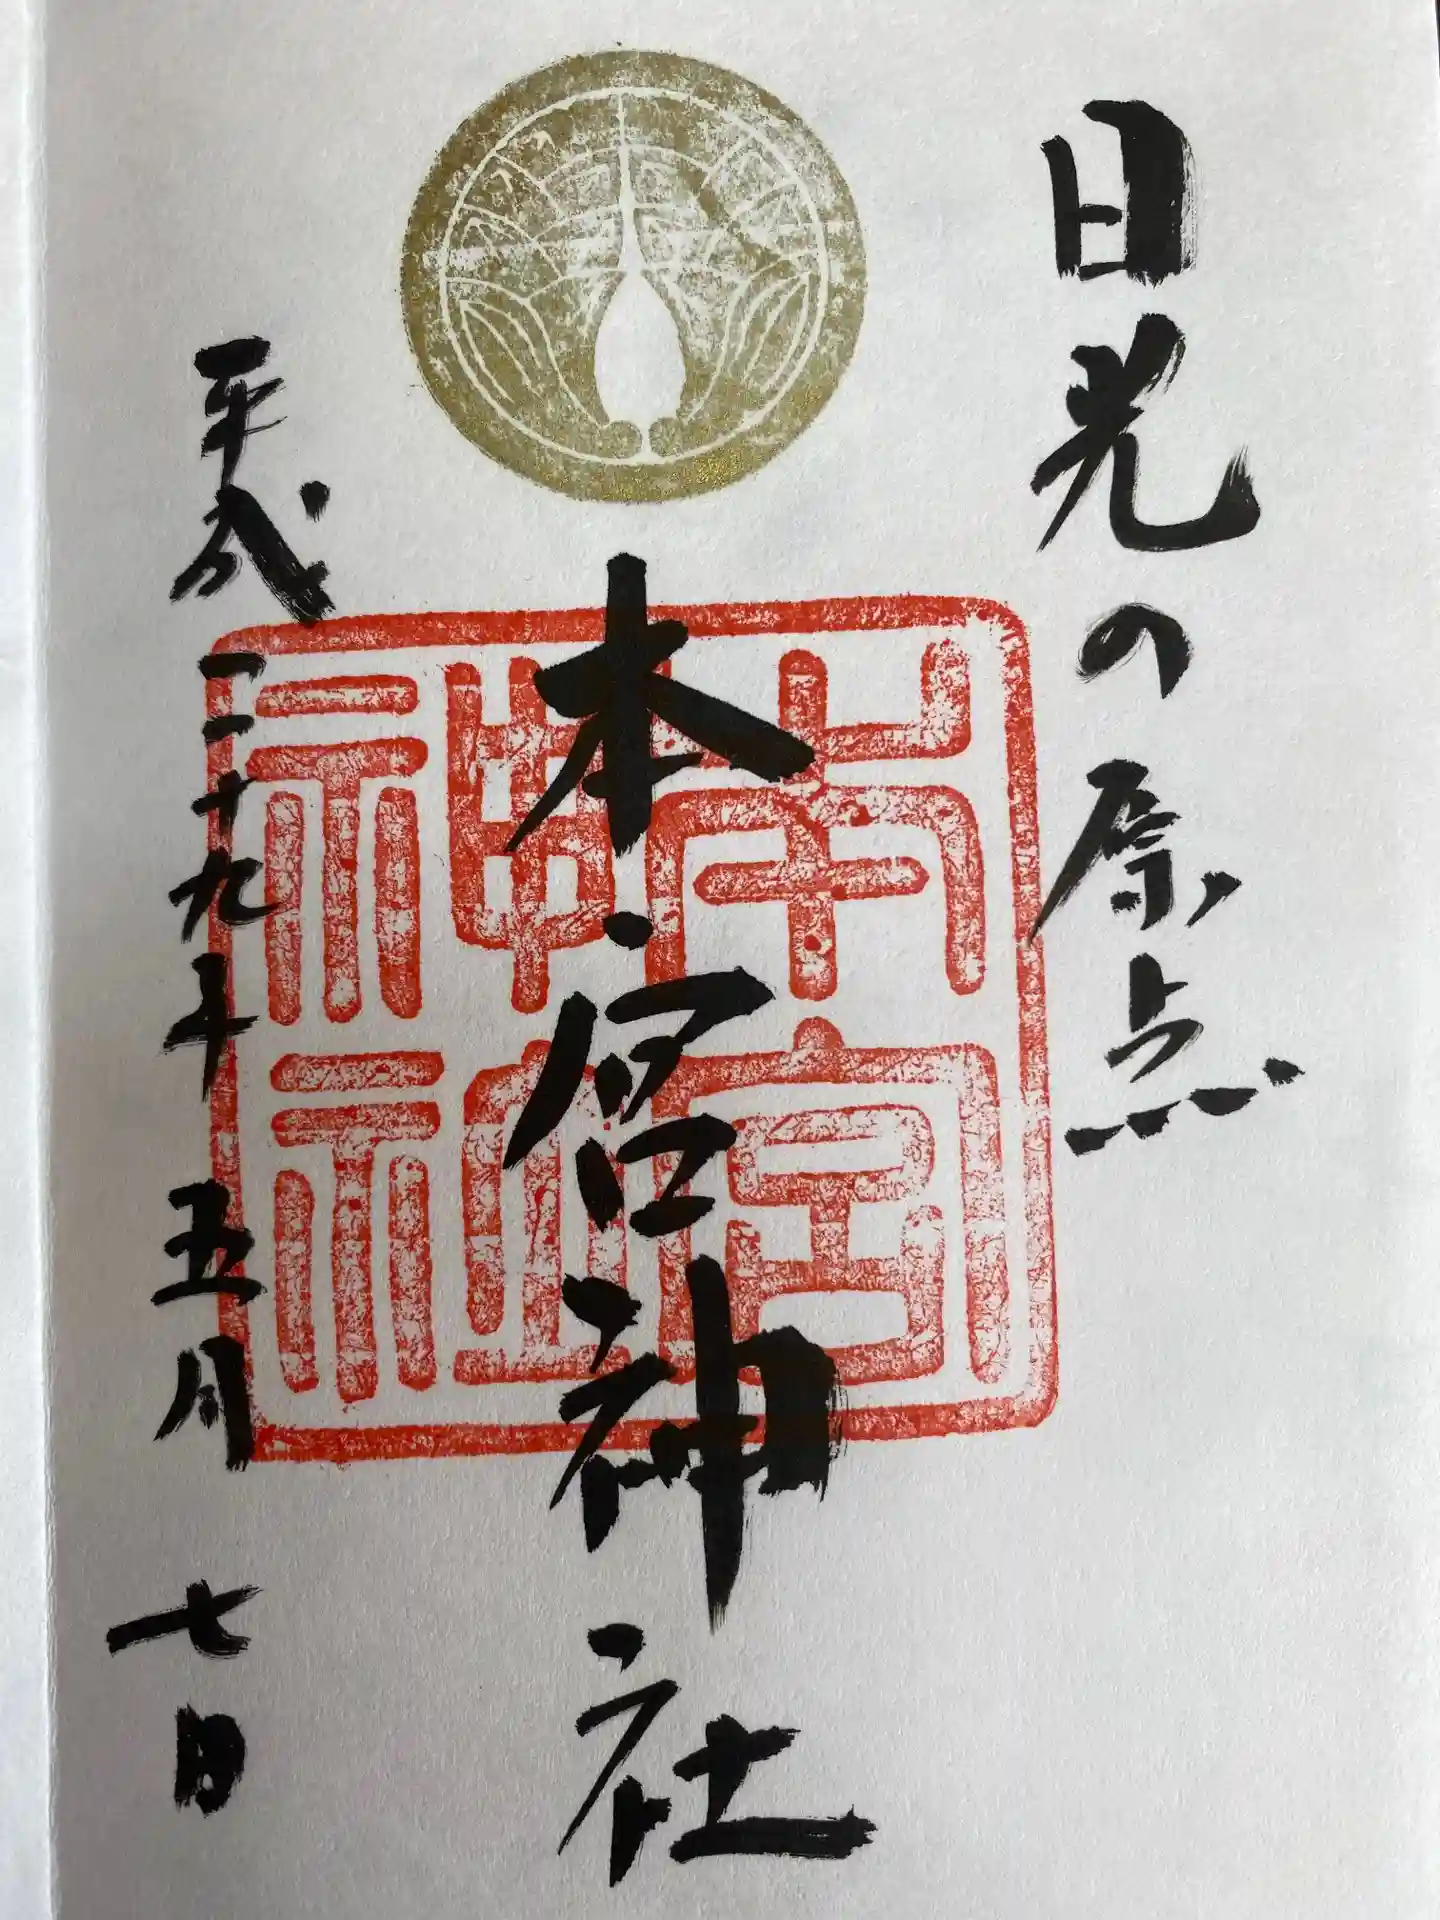 日光の原点
本宮神社
本宮神社
平成二十九年五月七日